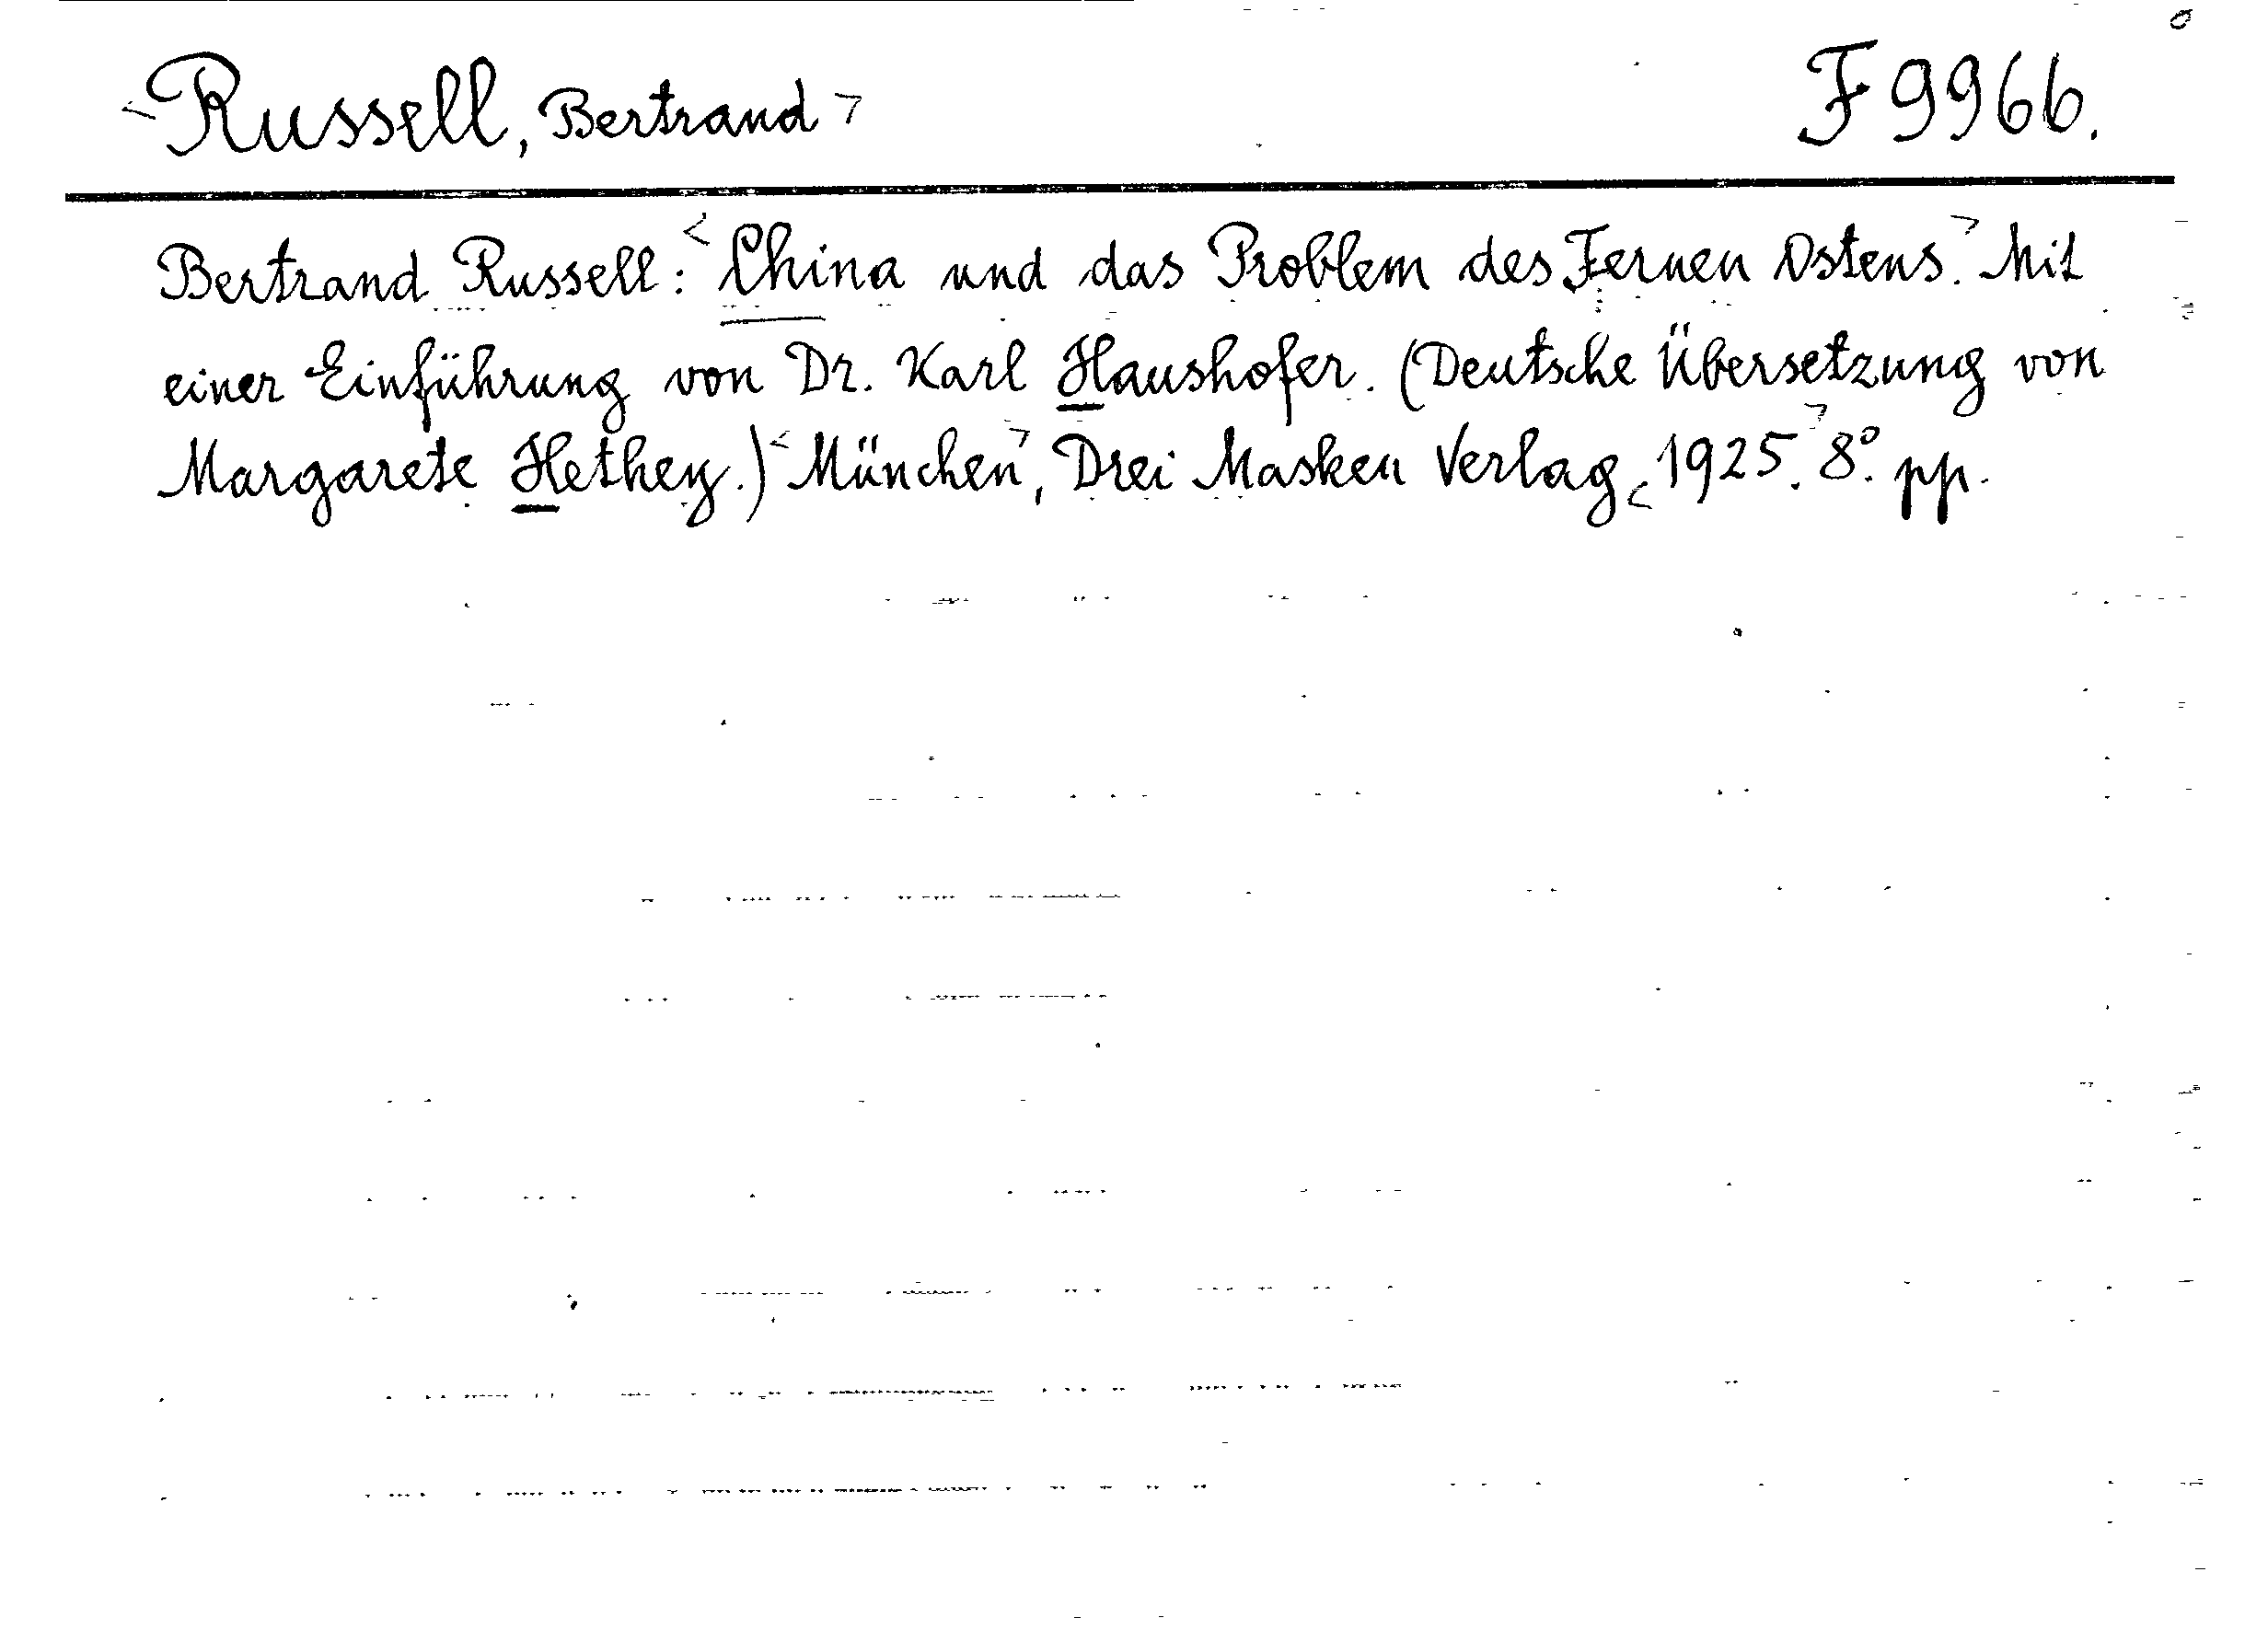 <Russell, Bertrand> F 9966.
Bertrand Russell: <China und das Problem des Fernen Ostens.> Mit
einer Einführung von Dr. Karl Haushofer. (Deutsche Übersetzung von
Margarete Hethey.) <München>, Drei Masken Verlag <1925.> 8°. pp.